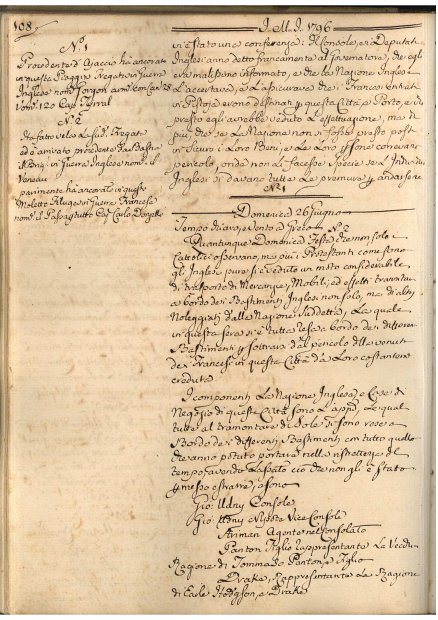 108
J. M. J. 1796
N.° 1
Procidente d'Ajaccio ha ancorato
in questa Piaggia Fregata in Guerra
Inglese nom.
Vom.ⁱ 120 Cap.
N.° 2
Ha fatto vela La sud.ᵃ Fregata
ed è arrivato procidente da Bastia
in Guerra Inglese nom.
parimente ha ancorato in questo
Moletto Feluga in Guerra Francese
nom.
vi è stato una conferenza; Il Console, e i Deputati
Inglesi anno detto francamente al Governatore, che egli
era mal informato, e che la Nazione Inglese
L'accertava, e L'assicurava che i Francesi entrati
in Pistoja erono destinati questa Città, e Porto, e di
presto egli avrebbe veduto L'effettuazione, ma di
più che se La Nazione non si fosse presto post
in sicuro i Loro Beni, e Le Loro
pericolo, onde non Li facesse Specie se L'Individui
Inglesi si davano tutte Le premure andarsene
N.° 1
Domenica 26 Giugno
Tempo chiaro, e vento a Greco N.° 2
Quantunque Domenica Festa che non solo i
Cattolici osservano, ma pur i Protestanti come sono
gli Inglesi pure si è veduto un moto considerabile
di trasporto di Mercanzie, Mobili, ed effetti
a bordo dei Bastimenti Inglesi non solo, ma di altri
Noleggiati dalla Nazione Suddetta, La quale
in questa sera si è tutta resa a bordo dei differenti
Bastimenti sottrarsi dal pericolo della venuta
dei Francesi in questa Città da Loro costantemente
creduta
I componenti La Nazione Inglese, e Case di
Negozio di questa Città sono L'app.ⁱ, Le quali
tutte al tramontare di Sole si sono rese a
Bordo dei differenti Bastimenti con tutto quello
che anno potuto portare nella ristrettezza del
tempo, avendo Lasciato ciò che non gli è stato
permesso estrarre, e sono
Gio: Udny Console
Gio: Udny Nipote Vice Console
Agente nel Consolato
Panton Figlio rappresentante La Vecchia
Ragione di Tommaso Panton, e Figlio
Drake, Rappresentante La Ragione
di Earle Hodgson, e Drake